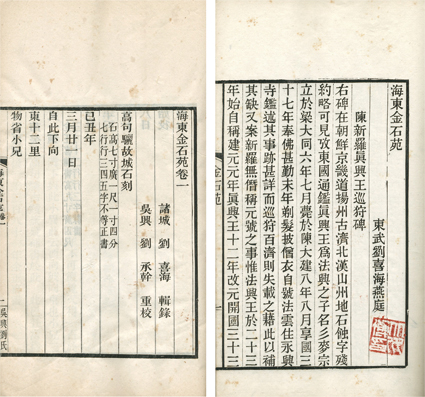 海東金石苑
東武劉喜海燕庭
陳新羅眞興王巡狩碑
右碑在朝鮮京畿道揚州古濟北漢山州地石蝕字殘
約略可見攷東國通鑑眞興王爲法興之子名彡麥宗
立於梁大同六年七月薨於陳大建八年八月享國三
十七年奉佛甚勤末年剃髮披僧衣自號法雲住永興
寺鑑述其事跡甚詳而巡狩百濟則失載之藉此以補
其缺又案新羅無僭稱元號之事惟法興王於二十三
年始自稱建元元年眞興王十二年改元開國三十三
金石苑
海東金石苑卷一
諸城 劉 喜海 輯錄
吳興 劉 承幹 重校
高句驪故城石刻
石高七寸廣一尺一寸四分
七行行三四五字不等正書
己丑年
三月廿一日
自此下向
東十二里
物省小兄
吳興劉氏